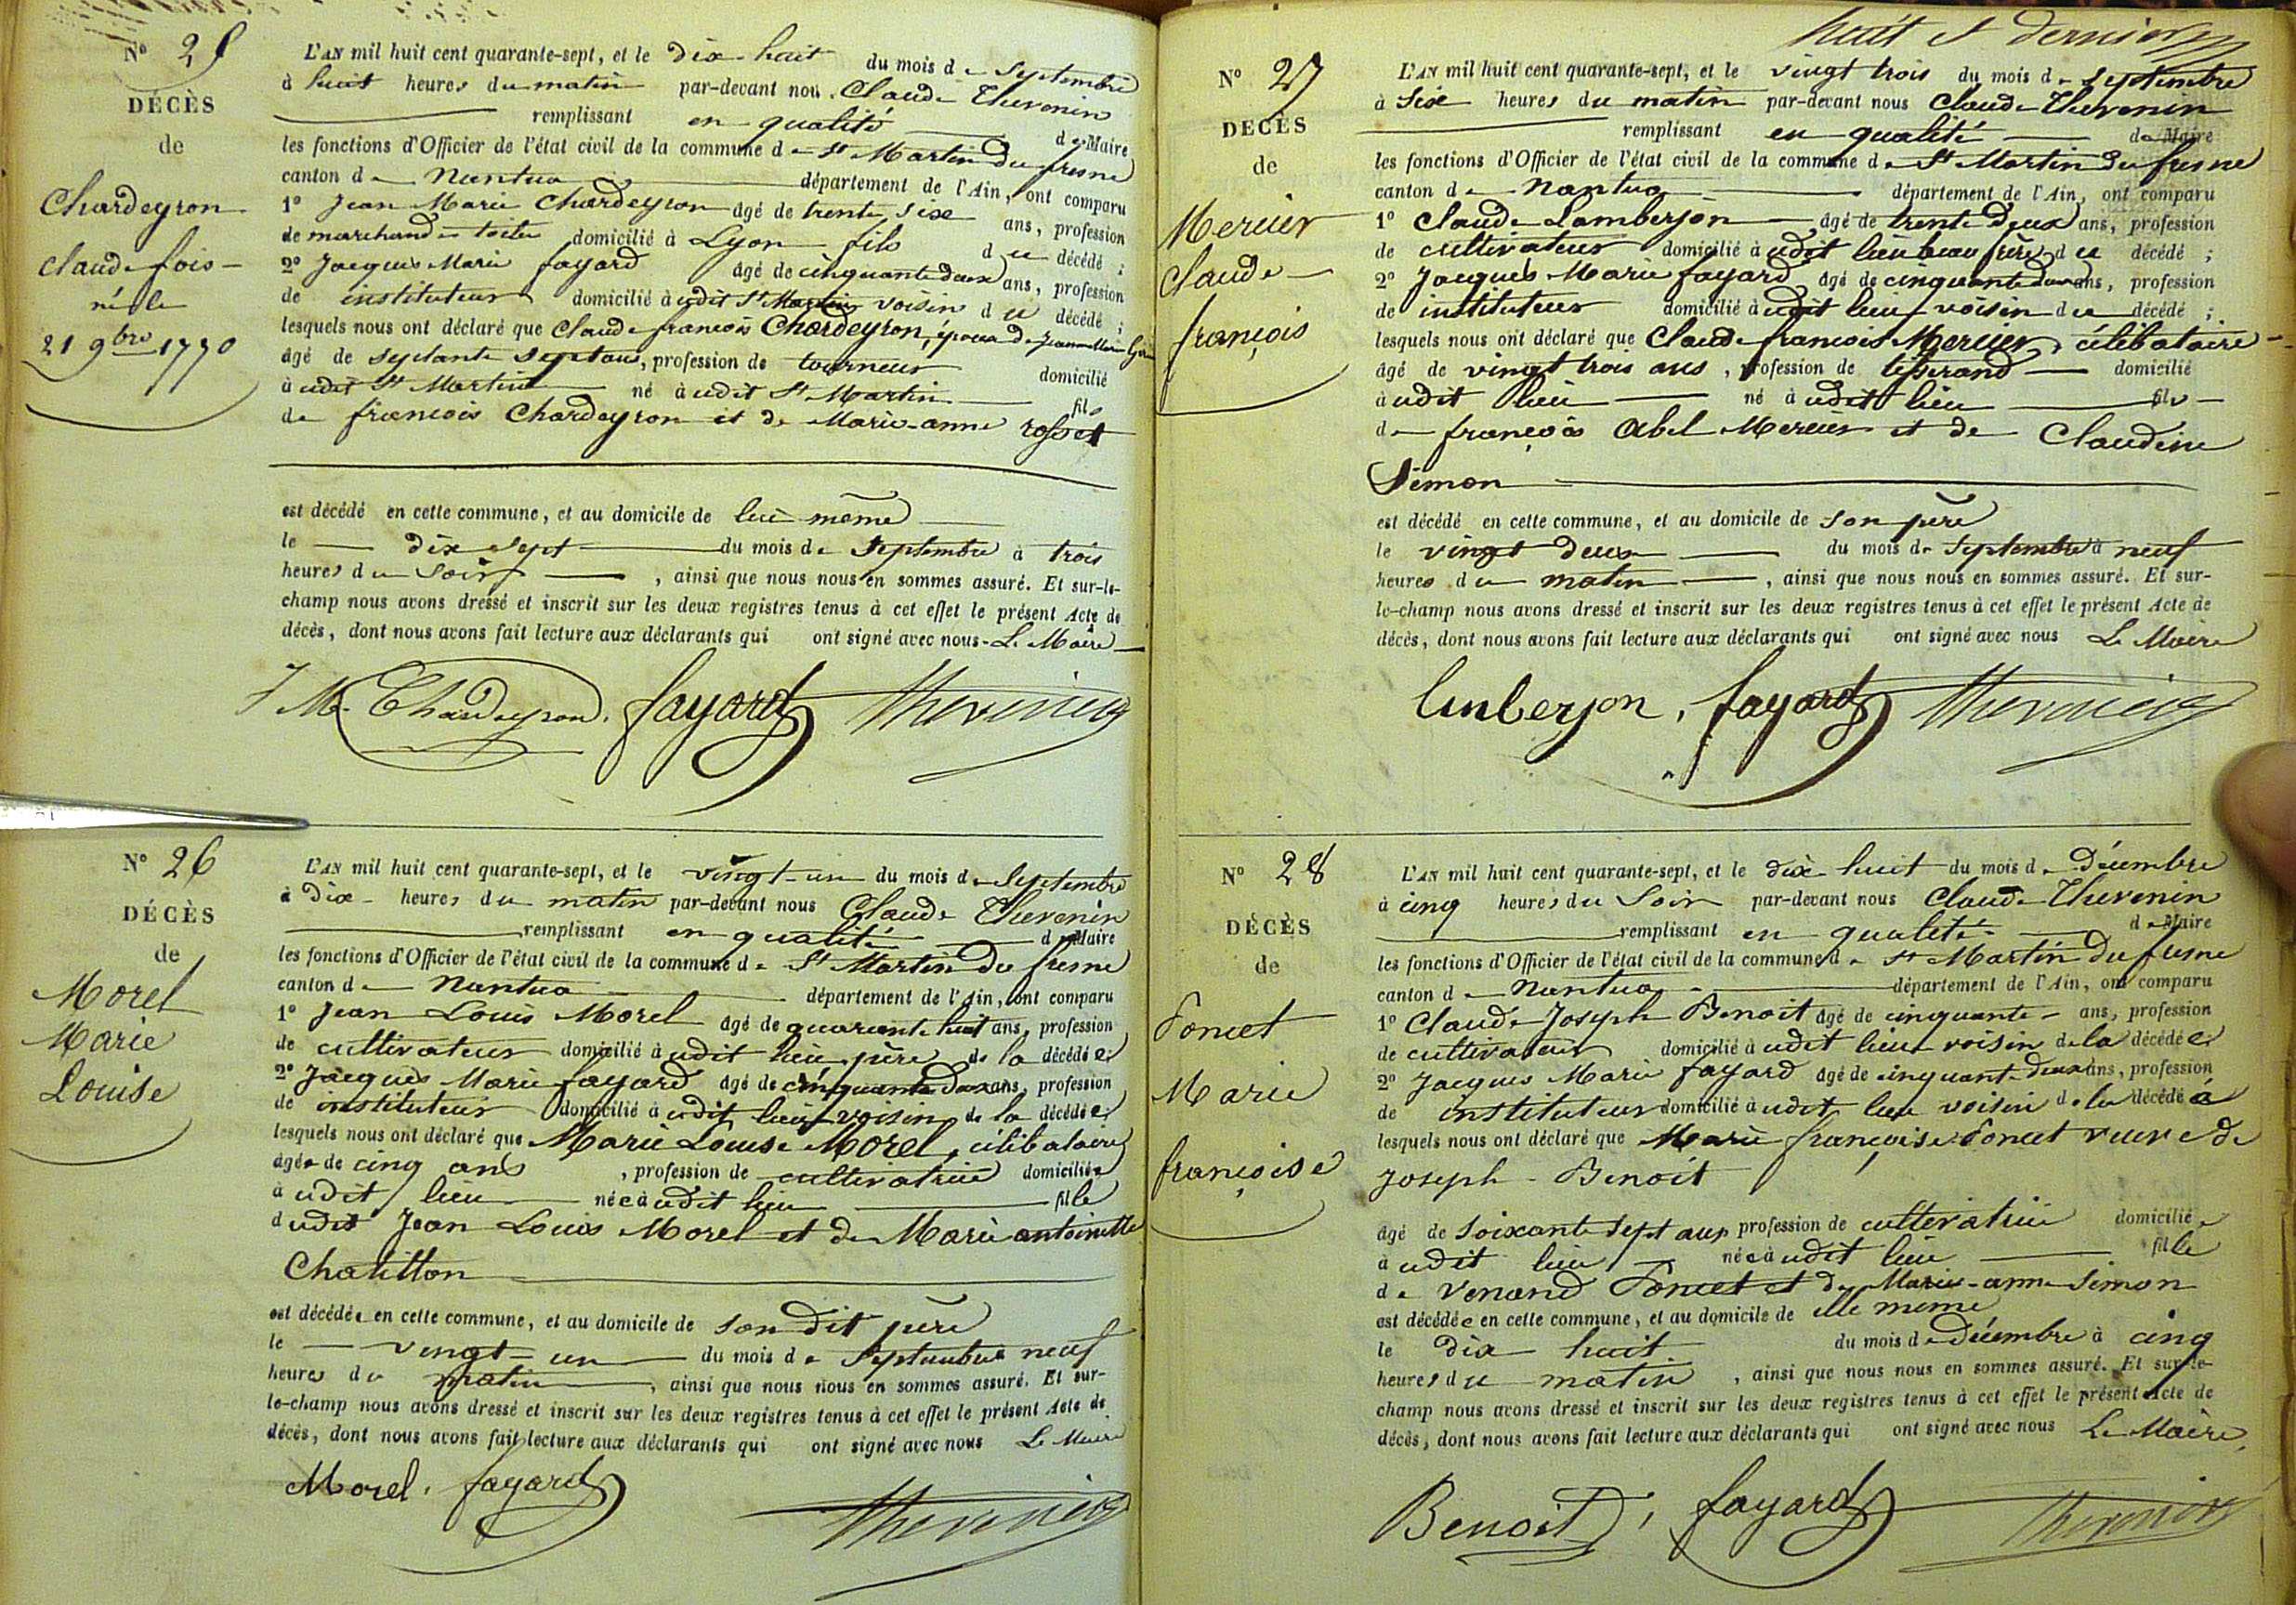 N° 25
DÉCÈS
de
Chardeyron
claude fois
né le
21 9bre 1770
L'AN mil huit cent quarante-sept, et le dix-huit du mois de Septembre
à huit heures du matin par-devant nou. Claude Thevenin
remplissant en qualité de Maire
les fonctions d'Officier de l'état civil de la commune de St Martin Du fresne
canton de Nantua département de l'Ain, ont comparu
1° Jean Marie Chardeyron agé de trente Sixe ans, profession
de marchand de toiles domicilié à Lyon fils du décédé ;
2° Jacques Marie fayard âgé de cinquante deux ans, profession
de instituteur domicilié à udit St Martin voisin du décédé ;
lesquels nous ont déclaré que Claude francois Chardeyron, époux de Jeanne Marie
âgé de septante sept ans, profession de tourneur domicilié
à udit St Martin né à udit St Martin fils
de francois Chardeyron et de Marie-anne rosset
est décédé en cette commune, et au domicile de lui même
le dix sept du mois de Septembre à trois
heures du Soir , ainsi que nous nous en sommes assuré. Et sur-le-
champ nous avons dressé et inscrit sur les deux registres tenus à cet effet le présent Acte de
décès, dont nous avons fait lecture aux déclarants qui ont signé avec nous Le Maire
J M Chardeyron. fayard Thevenin
N° 26
DÉCÈS
de
Morel
Marie
Louise
L'AN mil huit cent quarante-sept, et le vingt-un du mois de Septembre
à Dix heures du matin par-devant nous Claude Thevenin
remplissant en qualité de Maire
les fonctions d'Officier de l'état civil de la commune de St Martin Du fresne
canton de Nantua département de l'Ain, ont comparu
1° Jean Louis Morel agé de quarante huit ans, profession
de cultivateur domicilié à udit lieu père de la décédée
2° Jacques Marie fayard agé de cinquante Deux ans, profession
de instituteur domicilié à udit lieu voisin de la décédée
lesquels nous ont déclaré que Marie Louise Morel, célibataire
âgée de cinq ans , profession de cultivatrice domiciliée
à udit lieu née à udit lieu fille
dudit Jean Louis Morel et de Marie antoinette
Chatillon
est décédée en cette commune, et au domicile de son dit père
le vingt-un du mois de Septembre neuf
heures du matin , ainsi que nous nous en sommes assuré. Et sur-
le-champ nous avons dressé et inscrit sur les deux registres tenus à cet effet le présent Acte de
décès, dont nous avons fait lecture aux déclarants qui ont signé avec nous Le Maire
Morel. fayard Thevenin
huit et dernier
N° 27
DÉCÈS
de
Mercier
Claude
françois
L'AN mil huit cent quarante-sept, et le vingt trois du mois de Septembre
à Sixe heures du matin par-devant nous Claude Thevenin
remplissant en qualité de Maire
les fonctions d'Officier de l'état civil de la commune de St Martin Du fresne
canton de Nantua département de l'Ain, ont comparu
1° Claude Lamberjon âgé de trente Deux ans, profession
de cultivateur domicilié à udit lieu beau frère du décédé ;
2° Jacques Marie fayard agé de cinquante deux ans, profession
de instituteur domicilié à udit lieu voisin du décédé ;
lesquels nous ont déclaré que Claude francois Mercier, célibataire
âgé de vingt trois ans , profession de tisserand domicilié
à udit lieu né à udit lieu fils
de françois Abel Mercier et de Claudine
Simon
est décédé en cette commune, et au domicile de son père
le vingt deux du mois de Septembre à neuf
heures du matin , ainsi que nous nous en sommes assuré. Et sur-
le-champ nous avons dressé et inscrit sur les deux registres tenus à cet effet le présent Acte de
décès, dont nous avons fait lecture aux déclarants qui ont signé avec nous Le Maire
Lamberjon, fayard Thevenin
N° 28
DÉCÈS
de
Poncet
Marie
françoise
L'AN mil huit cent quarante-sept, et le dix-huit du mois de Décembre
à cinq heures du Soir par-devant nous Claude Thevenin
remplissant en qualité de Maire
les fonctions d'Officier de l'état civil de la commune de St Martin Du fresne
canton de Nantua département de l'Ain, ont comparu
1° Claude Joseph Benoit agé de cinquante ans, profession
de cultivateur domicilié à udit lieu voisin de la décédée
2° Jacques Marie fayard agé de cinquante deux ans, profession
de instituteur domicilié à udit lieu voisin de la décédé
lesquels nous ont déclaré que Marie françoise Poncet veuve de
Joseph Benoit
âgé de soixante sept ans profession de cultivatrice domiciliée
à udit lieu née à udit lieu fille
de Venand Poncet et de Marie-anne Simon
est décédée en cette commune, et au domicile de elle meme
le dix huit du mois de Décembre à cinq
heures du matin , ainsi que nous nous en sommes assuré. Et sur-le-
champ nous avons dressé et inscrit sur les deux registres tenus à cet effet le présent Acte de
décès, dont nous avons fait lecture aux déclarants qui ont signé avec nous Le Maire
Benoit, fayard Thevenin